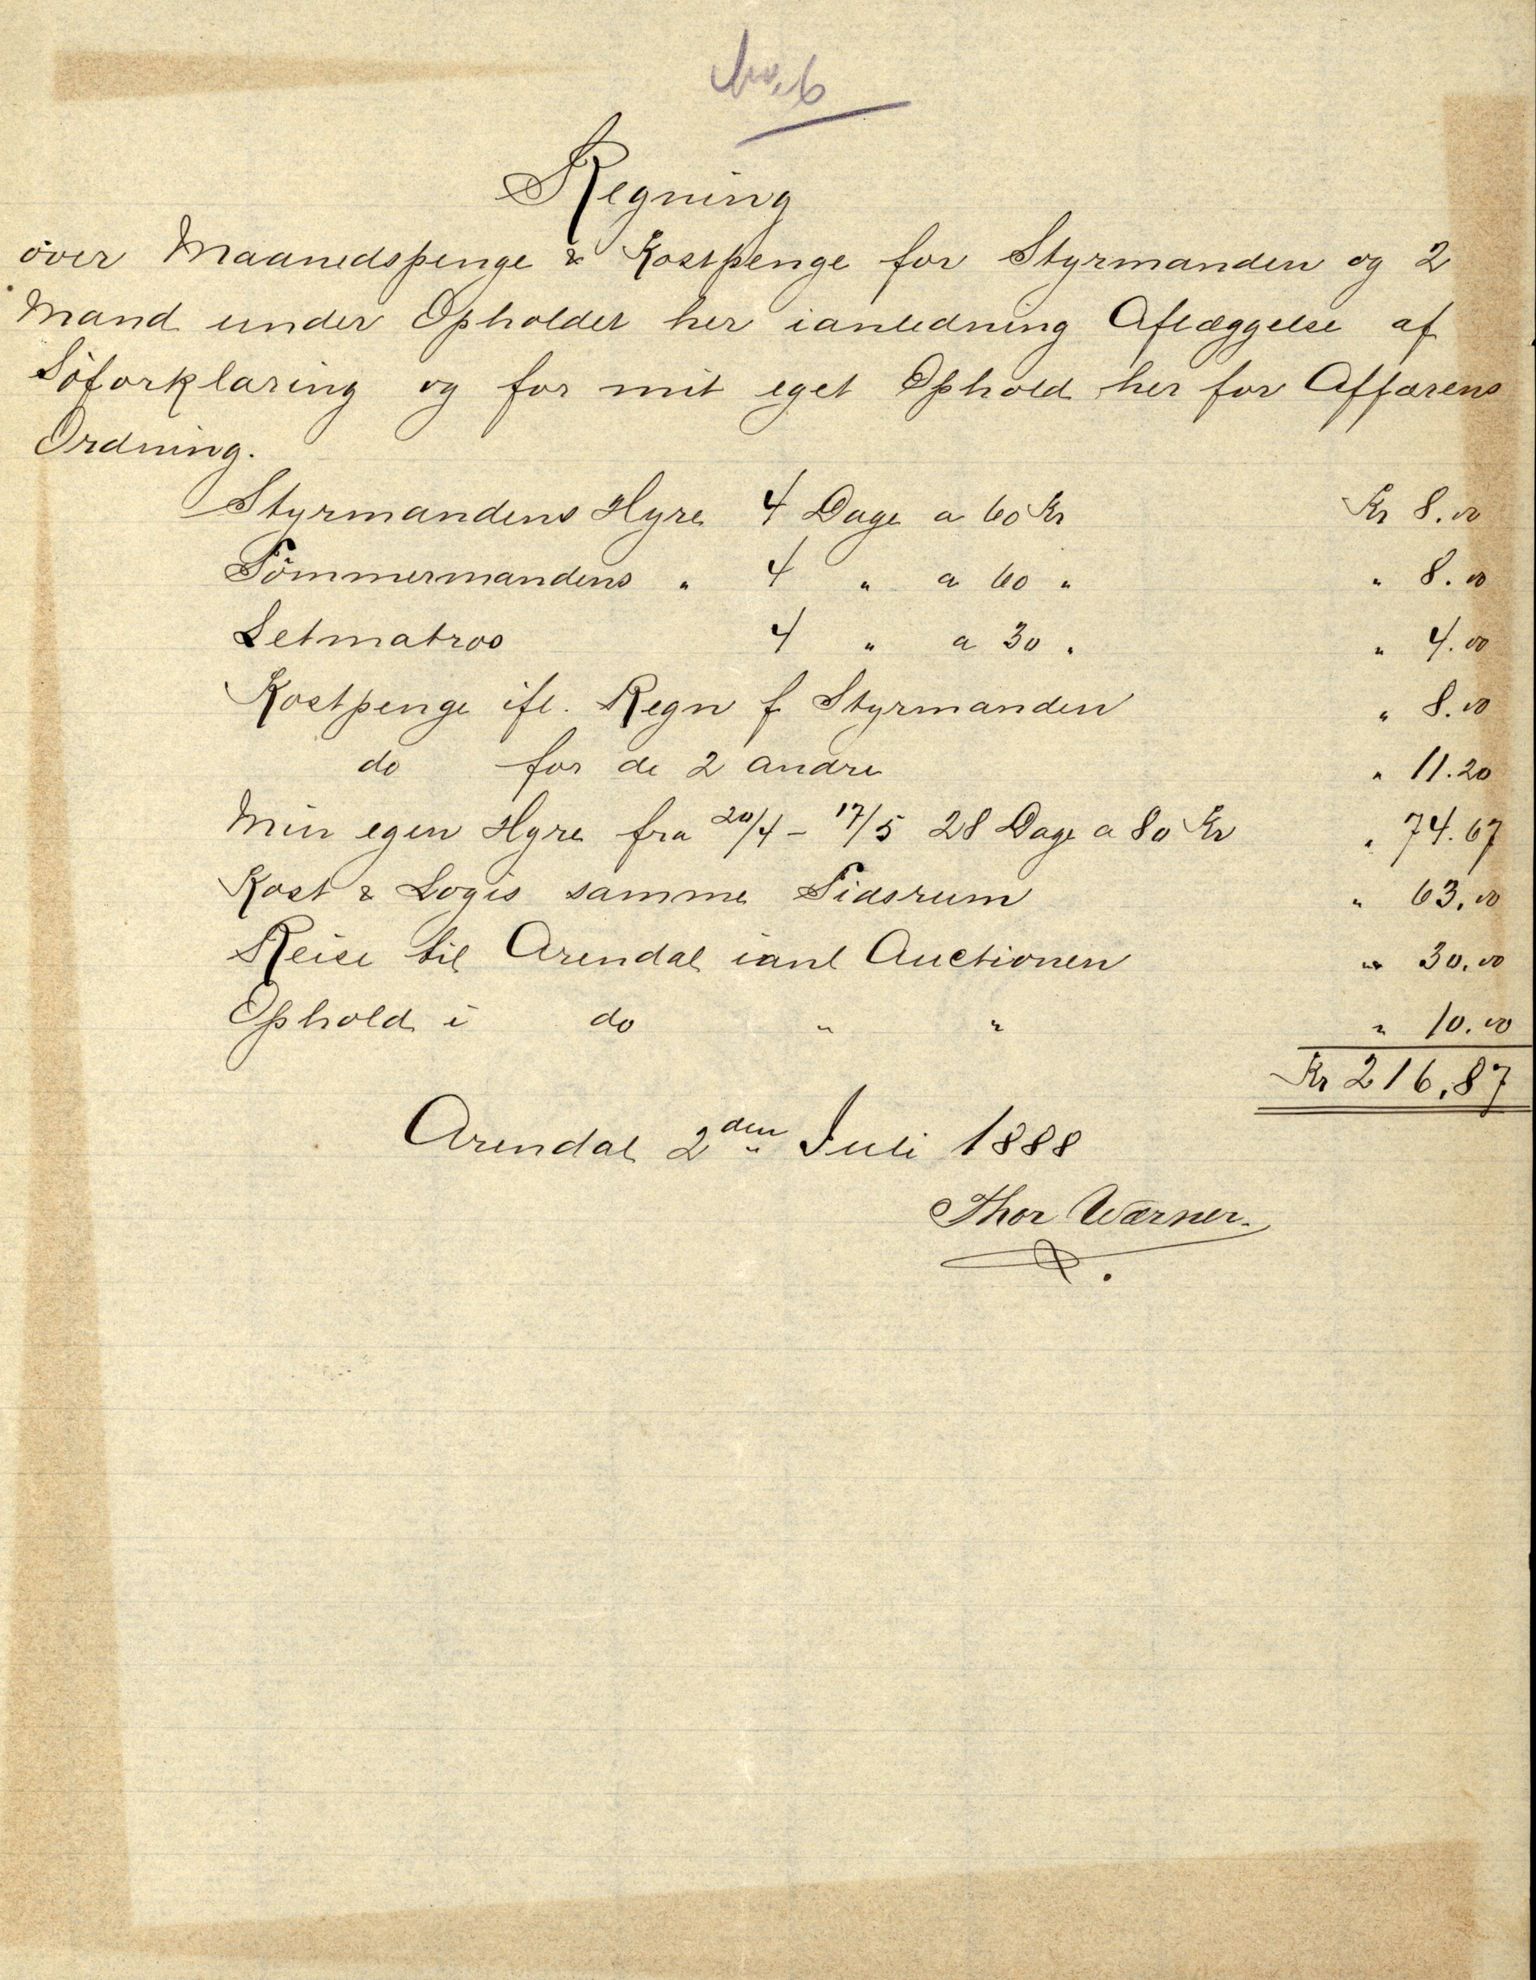 No. 6
Regning
over Maanedspenge & Kostpenge for Styrmanden og 2
Mand under Opholdet her ianledning Aflæggelse af
Söforklaring og for mit eget Ophold her for Affærens
Ordning.
Styrmandens Hyre 4 Dage a 60 Kr Kr 8.00
Tömmermandens " 4 " a 60 " " 8.00
Letmatros 4 " a 30 " " 4.00
Kostpenge ifl. Regn f Styrmanden " 8.00
do for de 2 andre " 11.20
Min egen Hyre fra 20/4 - 17/5 28 Dage a 80 Kr " 74.67
Kost & Logis samme Tidsrum " 63.00
Reise til Arendal ianl Auctionen " 30.00
Ophold i do " " " 10.00
Kr 216,87
Arendal 2den Juli 1888
Thor Wærner.